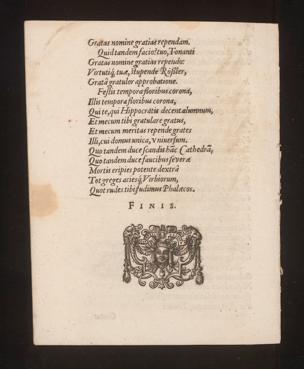 Gratas nomine gratiae rependam.
Quid tandem facio? tuo, Tonanti
Gratas nomine gratias rependo:
Virtutiq́; tuæ, stupende Rößler,
Gratâ gratulor approbatione.
Festis tempora floribus corona,
Illis tempora floribus corona,
Qui te, qui Hippocratis decent alumnum,
Et mecum tibi gratulare gratus,
Et mecum meritas repende grates
Illi, cui domus unica, vniuersum.
Quo tandem duce scandis hãc Cathedrã,
Quo tandem duce faucibus seueræ
Mortis eripies potente dextrâ
Tot greges aciesq́; Virbiorum,
Quot rudes tibi fudimus Phalæcos.
FINIS.